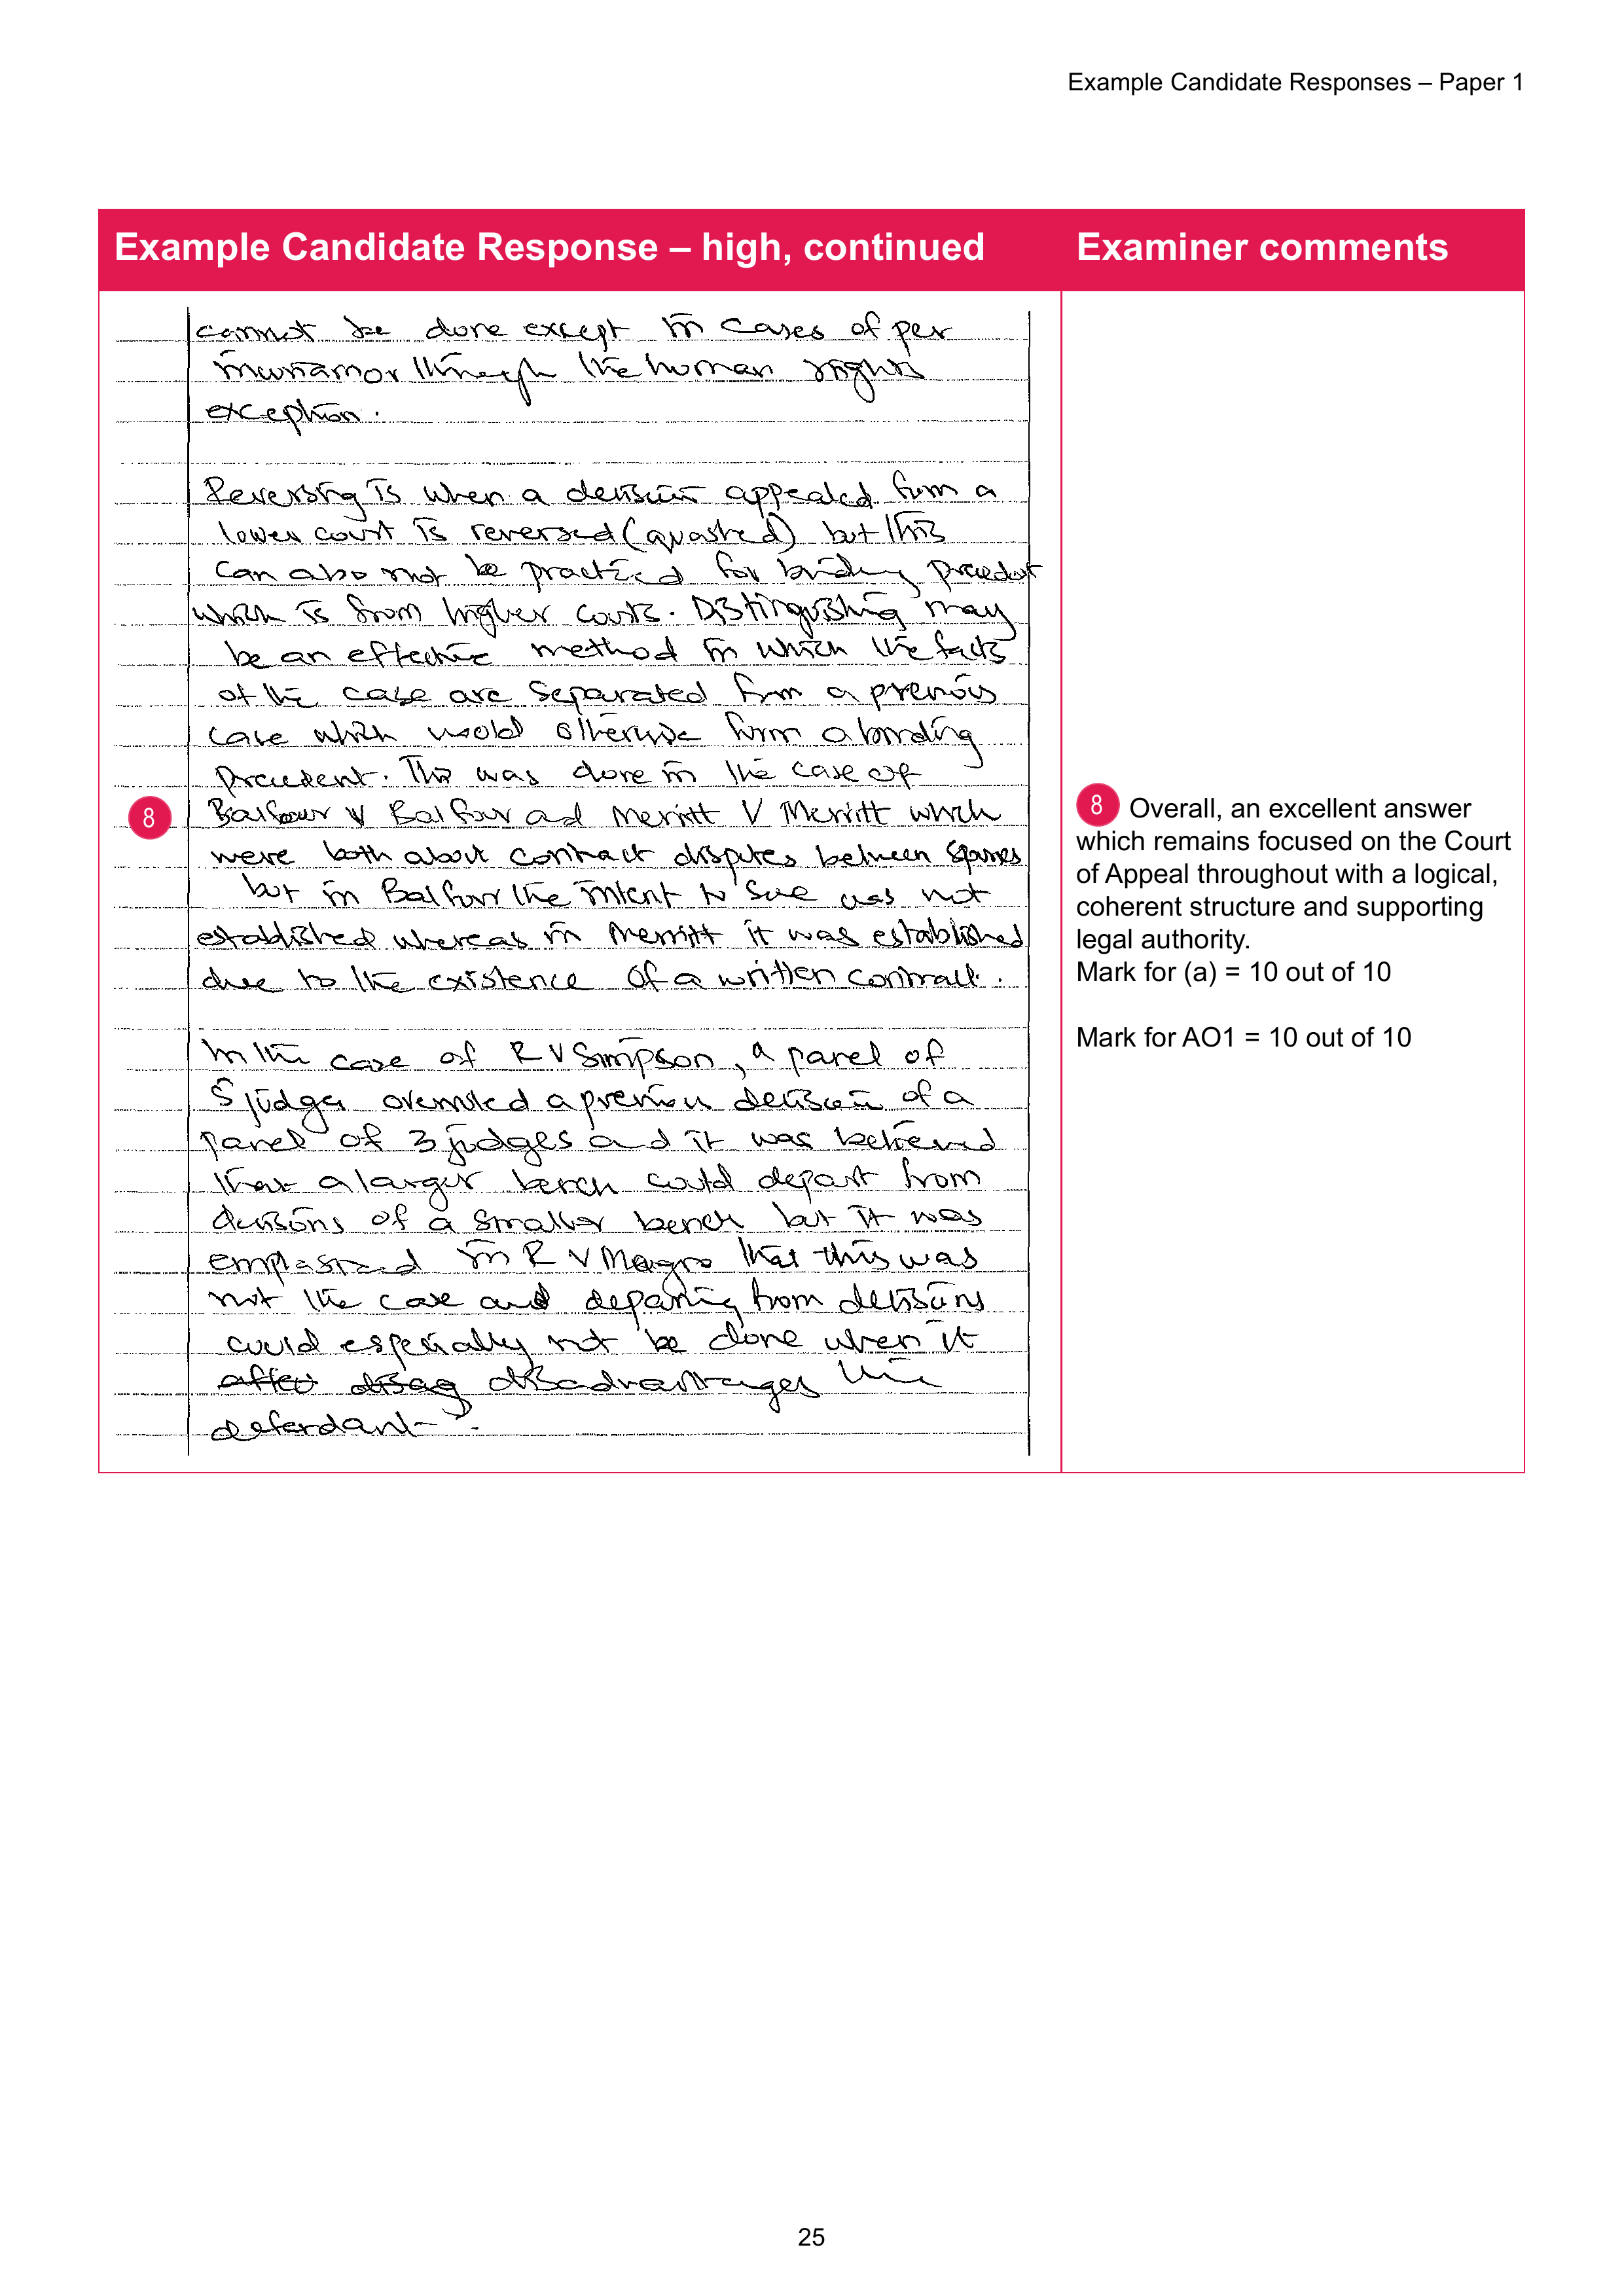 Example Candidate Responses – Paper 1
Example Candidate Response – high, continued
Examiner comments
cannot be done except in cases of per
through the human rights
exception.
Reversing is when a decision appealed from a
lower court is reversed (quashed) but this
can also not be practiced for binding precedent
which is from higher courts. Distinguishing may
be an effective method in which the facts
of the case are separated from a previous
case which would otherwise form a binding
precedent. This was done in the case of
8
Balfour v Balfour and Merritt V Merritt which
were both about contract disputes between spouses
but in Balfour the intent to sue was not
established whereas in Merritt it was established
due to the existence of a written contract.
In the case of R V Simpson, a panel of
5 judges overruled a previous decision of a
panel of 3 judges and it was believed
that a larger bench could depart from
decisions of a smaller bench but it was
in R V Magro that this was
not the case and departing from decisions
could especially not be done when it
affect disag disadvantages the
defendant.
8 Overall, an excellent answer
which remains focused on the Court
of Appeal throughout with a logical,
coherent structure and supporting
legal authority.
Mark for (a) = 10 out of 10
Mark for AO1 = 10 out of 10
25